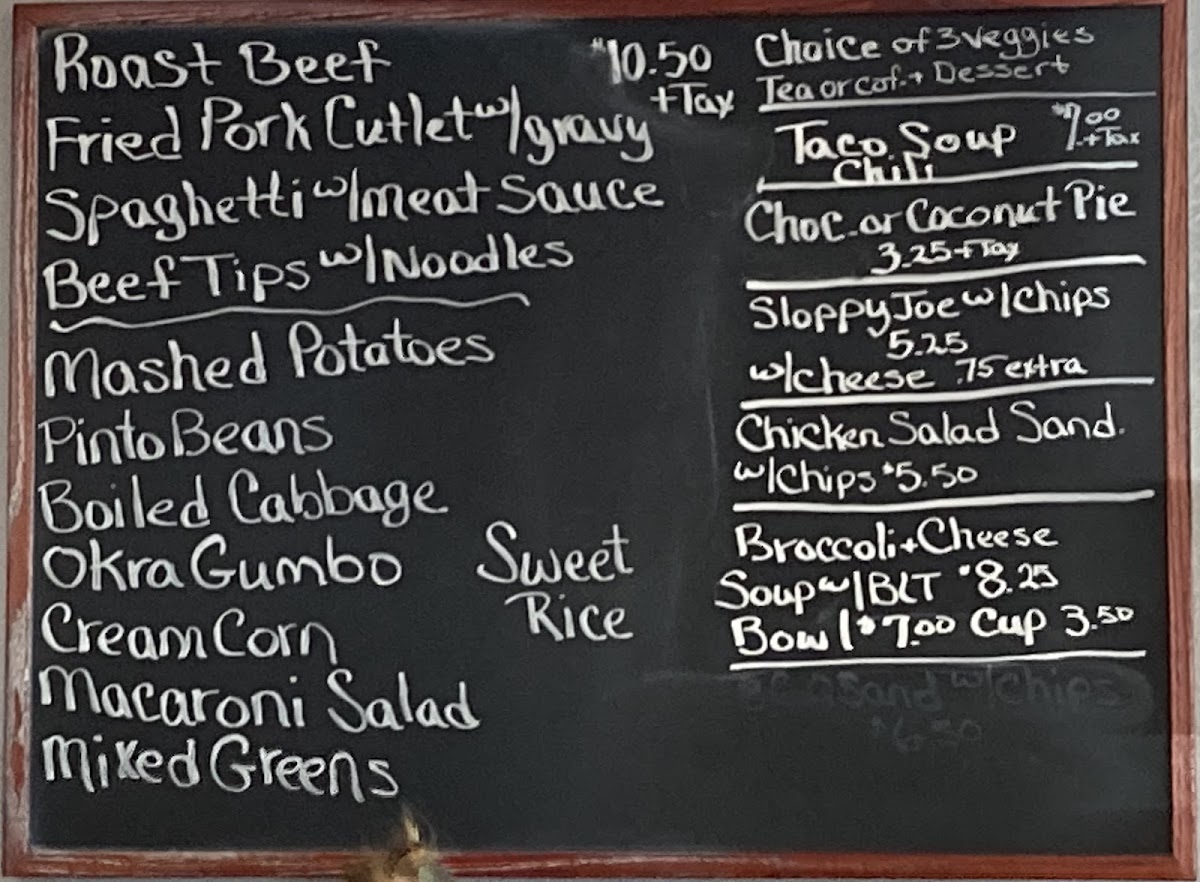 Roast Beef $10.50
+Tax
Fried Pork Cutlet w/gravy
Spaghetti w/meat Sauce
Beef Tips w/Noodles
Mashed Potatoes
Pinto Beans
Boiled Cabbage
Okra Gumbo
Cream Corn
Macaroni Salad
Mixed Greens
Sweet
Rice
Choice of 3 veggies
Tea or cof. + Dessert
Taco Soup $7.00
+Tax
Chili
Choc. or Coconut Pie
3.25+Tax
Sloppy Joe w/chips
5.25
w/cheese .75 extra
Chicken Salad Sand.
w/Chips $5.50
Broccoli+Cheese
Soup w/BLT $8.25
Bowl $7.00 Cup 3.50
Sand w/chips
$6.50